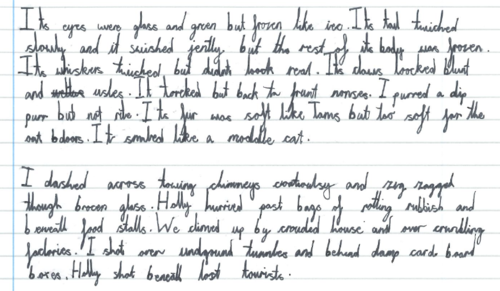 Its eyes were glass and green but frozen like ice. Its tail twiched
slowly and it swished jently but the rest of its body was frozen.
Its whiskers twiched but didnt look real. Its claws loocked blunt
and usles. It loocked but back to frunt nonses. I purred a dip
purr but not ribe. Its fur was soft like Tams but too soft for the
oot bdoors. It smelled like a modalle cat.
I dashed across towing chimneys and zig zagged
though brocen glass. Holly hurried past bags of rotting rubbish and
beneath food stalls. We climed up by crouded house and over crumbling
factories. I shot over undground tunnles and behind damp card board
boxes. Holly shot beneath lost tourists.